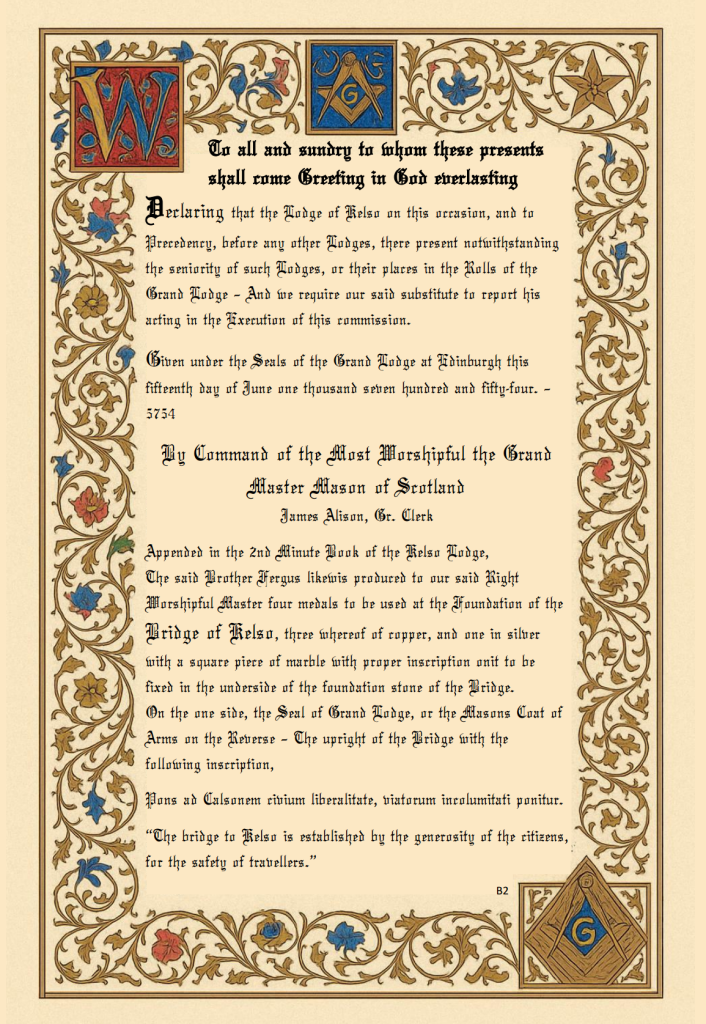 W
G
To all and sundry to whom these presents
shall come Greeting in God everlasting
Declaring that the Lodge of Kelso on this occasion, and to
Precedency, before any other Lodges, there present notwithstanding
the seniority of such Lodges, or their places in the Rolls of the
Grand Lodge – And we require our said substitute to report his
acting in the Execution of this commission.
Given under the Seals of the Grand Lodge at Edinburgh this
fifteenth day of June one thousand seven hundred and fifty-four. –
5754
By Command of the Most Worshipful the Grand
Master Mason of Scotland
James Alison, Gr. Clerk
Appended in the 2nd Minute Book of the Kelso Lodge,
The said Brother Fergus likewis produced to our said Right
Worshipful Master four medals to be used at the Foundation of the
Bridge of Kelso, three whereof of copper, and one in silver
with a square piece of marble with proper inscription onit to be
fixed in the underside of the foundation stone of the Bridge.
On the one side, the Seal of Grand Lodge, or the Masons Coat of
Arms on the Reverse – The upright of the Bridge with the
following inscription,
Pons ad Calsonem civium liberalitate, viatorum incolumitati ponitur.
“The bridge to Kelso is established by the generosity of the citizens,
for the safety of travellers.”
B2
G